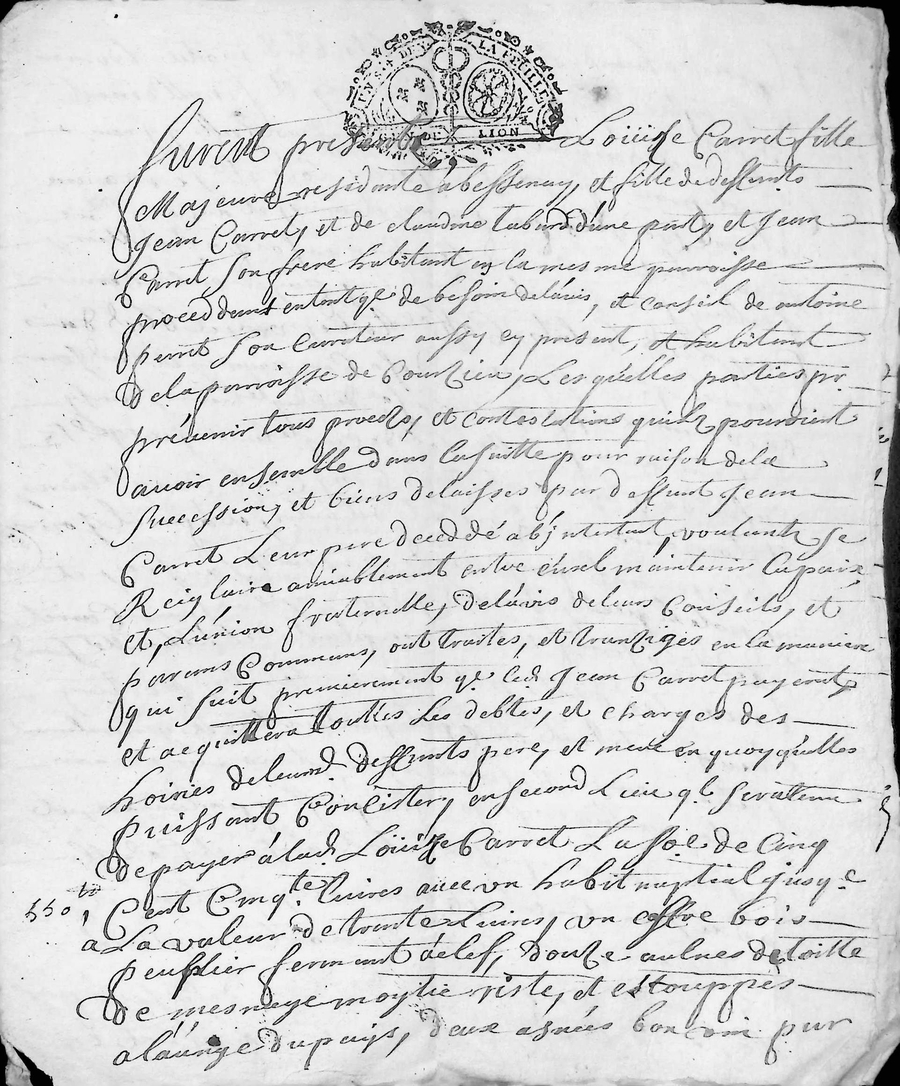 LA FEUILLE
LION
furent presents Loüize Carret fille
Majeure residante a bessenay, et fille de deffunts
Jean Carret, et de claudine tabard d'une part, et Jean
Carret son frere habitant en la mesme parroisse
proceddant entant qe de besoin de l'avis, et conseil de antoine
perret son curateur aussy cy present, et habitant
de la parroisse de Courzieu, Lesquelles parties pr
prévenir tous procez, et contestations quilz pourroient
avoir ensemble dans la suitte pour raison de la
succession, et biens delaisses par deffunt Jean
Carret Leur pere deceddé abjntestat, voulants se
Reiglaire amiablement entre eúx et maintenir la paix
et, L'union fraternelle, de l'avis de leurs Conseils, et
parans Communs, ont traités, et tranziges en la maniere
qui suit premierement qe led Jean Carret payera,
et acquittera touttes Les debtes, et charges des
hoiries de leursd deffunts pere, et mere en quoy qu'elles
puissent Concister, en second Lieu ql sera tenu
de payer á lad Loüize Carret La soe de Cinq
550 lt Cent Cinqte livres avec un habit nuptial jusqe
a La valeur de trante Livres, un coffre bois
peuplier fermant á clef, douze aulnes de toille
de mesnage moytie riste, et estouppes
a l'aunge du pays, deux asnées bon vin pur